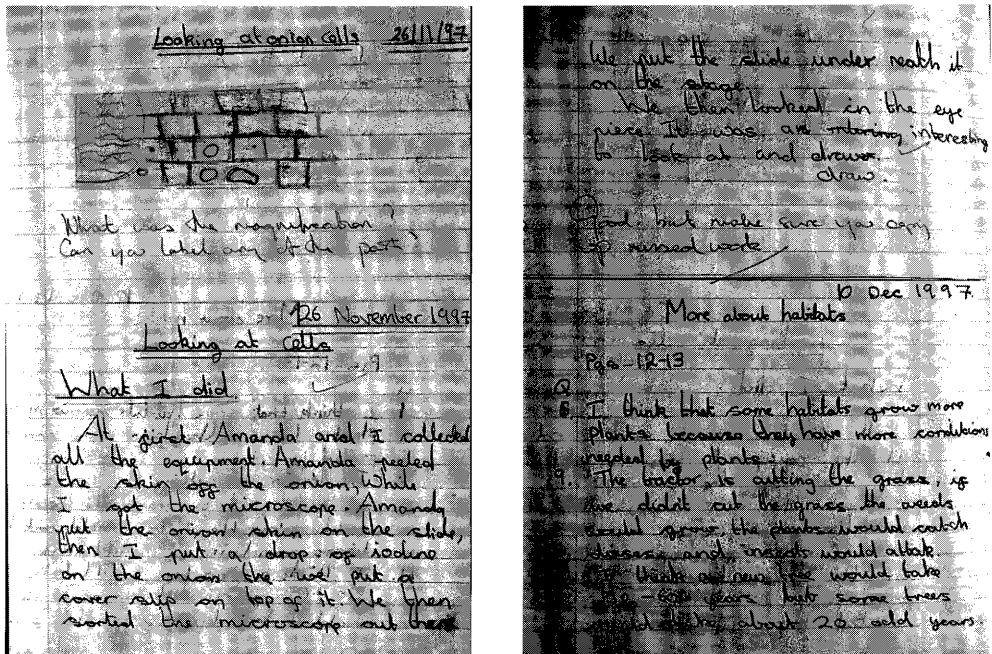 Looking at onion cells 26/11/97
What was the magnification?
Can you label any of the parts?
26 November 1997
Looking at cells
What I did
At first Amanda and I collected
all the equipment. Amanda peeled
the skin off the onion, while
I got the microscope. Amanda
put the onion skin on the slide,
then I put a drop of iodine
on the onion the we put a
cover slip on top of it. We then
sorted the microscope out then
We put the slide under neath it
on the stage.
We then looked in the eye
piece. It was an intering interesting
to look at and drawer.
draw.
Good but make sure you copy
up missed work
10 Dec 1997
More about habitats
Pgs - 12-13
Q
8. I think that some habitats grow more
plants because they have more conditions
needed by plants.
9. The tractor is cutting the grass, if
we didn't cut the grass the weeds
would grow, the plants would catch
diesese and insects would attak.
think a new tree would take
years but some trees
about 20 odd years.